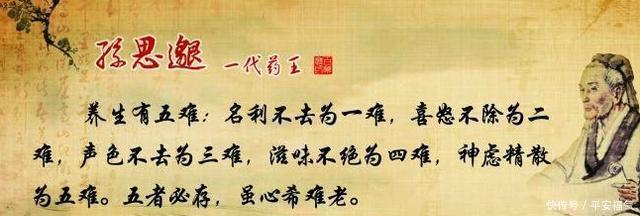 孙思邈 一代药王
养生有五难:名利不去为一难,喜怒不除为二
难,声色不去为三难,滋味不绝为四难,神虑精散
为五难。五者必存,虽心希难老。
快传号/平安福气